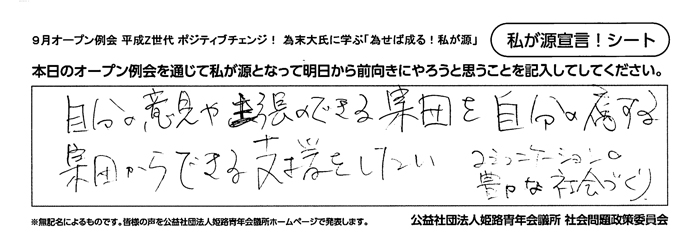 9月オープン例会 平成Z世代 ポジティブチェンジ! 為末大氏に学ぶ「為せば成る!私が源」
私が源宣言!シート
本日のオープン例会を通じて私が源となって明日から前向きにやろうと思うことを記入してしてください。
自分の意見や主張のできる集団を自分の属する
集団からできる支援をしたい コミュニケーションの
豊かな社会づくり
※無記名によるものです。皆様の声を公益社団法人姫路青年会議所ホームページで発表します。
公益社団法人姫路青年会議所 社会問題政策委員会